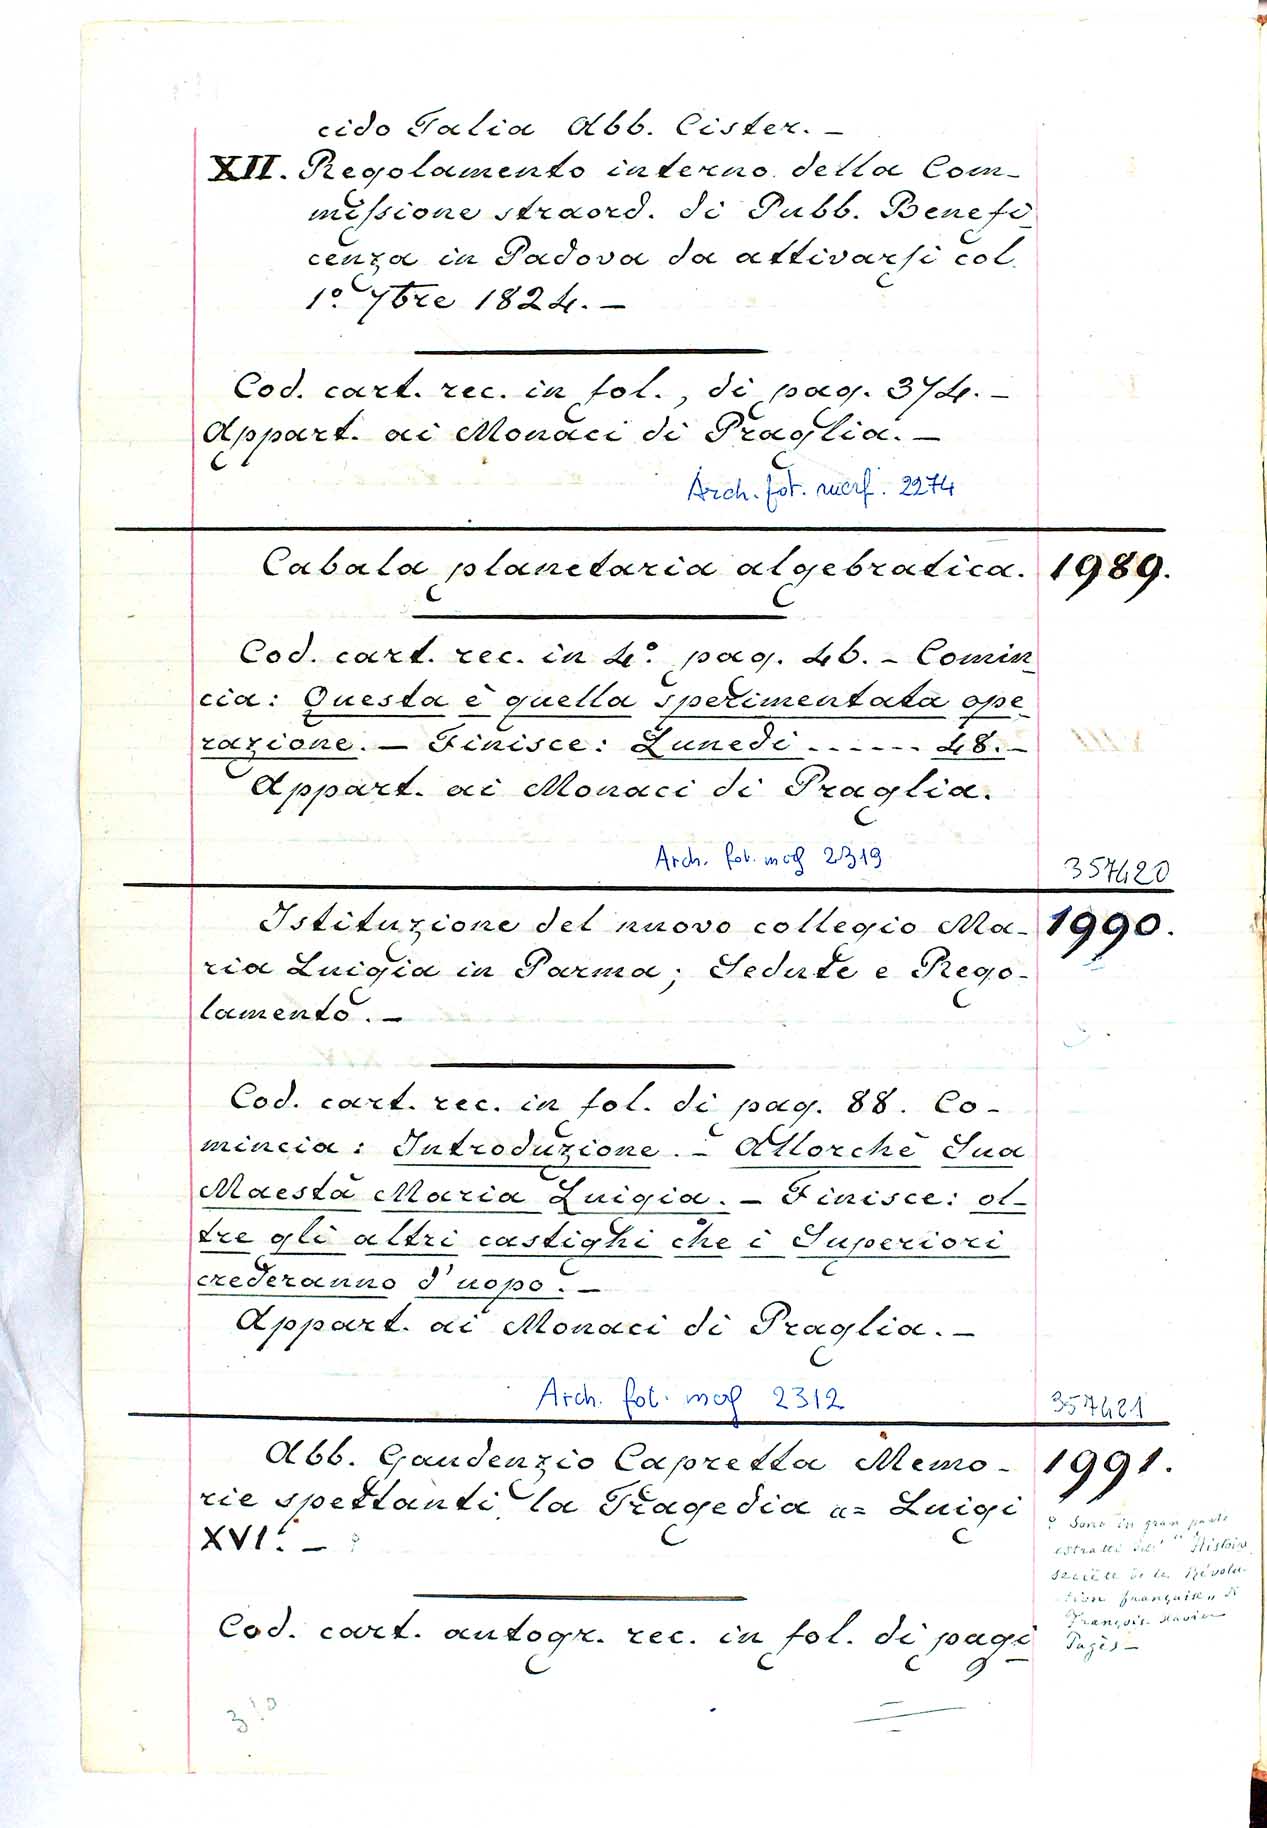 cido Talia Abb. Cister. –
XII. Regolamento interno della Com-
missione straord. di Pubb. Benefi
cenza in Padova da attivarsi col
1º. 7bre 1824. –
Cod. cart. rec. in fol., di pag. 374. –
Appart. ai Monaci di Praglia. –
Arch. fot. marf. 2274
Cabala planetaria algebratica. 1989.
Cod. cart. rec. in 4º. pag. 46. – Comin
cia: Questa è quella sperimentata ope
razione. – Finisce: Lunedì ...... 48. –
Appart. ai Monaci di Praglia.
Arch. fot. marf 2319
357420
Istituzione del nuovo collegio Ma- 1990.
ria Luigia in Parma; Sedute e Rego-
lamento. –
Cod. cart. rec. in fol. di pag. 88. Co-
mincia: Introduzione. – Allorchè Sua
Maestà Maria Luigia. – Finisce: ol-
tre gli altri castighi che i Superiori
crederanno d'uopo. –
Appart. ai Monaci di Praglia. –
Arch. fot. marf 2312
357421
Abb. Gaudenzio Capretta Memo- 1991.
rie spettanti la Tragedia „= Luigi
XVI. – ?
? Sono in gran parte
estratte dall' "Histoire
secrète de la Révolu-
tion française„ di
François Xavier
Pagès –
Cod. cart. autogr. rec. in fol. di pagi